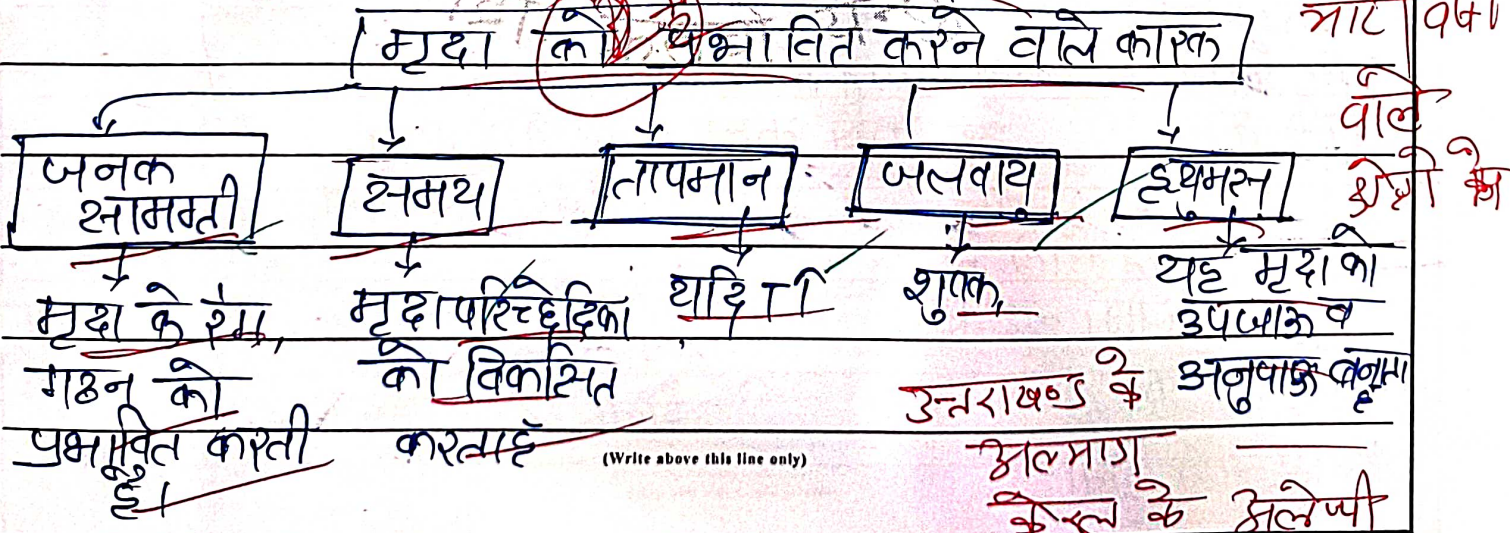 मृदा को प्रभावित करने वाले कारक
वाले
जनक
सामग्री
समय
तापमान
जलवायु
ह्युमस
मृदा के रंग,
गठन को
प्रभावित करती
है।
मृदा परिच्छेदिका
को विकसित
करता है
शुष्क,
यह मृदा को
उपजाऊ व
अनुपाऊ बनाता
है
उत्तराखण्ड के
केरल के अलेप्पी
(Write above this line only)